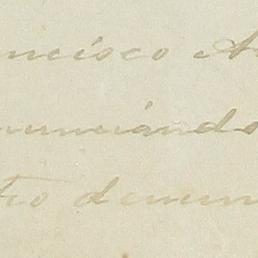 ncisco A
nunciándo
tro denun